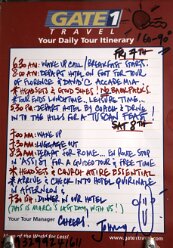 GATE 1
TRAVEL
Your Daily Tour Itinerary
FRI 7TH
6:30 AM: WAKE UP CALL / BREAKFAST STARTS.
8:00 AM: DEPART HOTEL ON FOOT FOR TOUR
OF FLORENCE & DAVID'S, ACCADEMIA
* HEADSETS & GOOD SHOES! NO BACKPACKS
* TOUR ENDS LUNCHTIME, LEISURE TIME.
DEPART HOTEL BY COACH & DRIVE
IN TO THE HILLS FOR A TUSCAN FEAST
SAT 8TH
7:00 AM: WAKE UP
7:30 AM: LUGGAGE OUT
8:00 AM: DEPART FOR ROME. EN ROUTE STOP
IN ASSISI FOR A GUIDED TOUR & FREE TIME
* HEADSETS & CHURCH ATTIRE ESSENTIAL
* ARRIVE & CHECK INTO HOTEL QUIRINALE
IN AFTERNOON
DINNER IN OUR HOTEL
(THIS IS MARCO'S LAST DAY WITH US!)
Your Tour Manager
CHEERS
More of the World for Less!
www.gate1travel.com